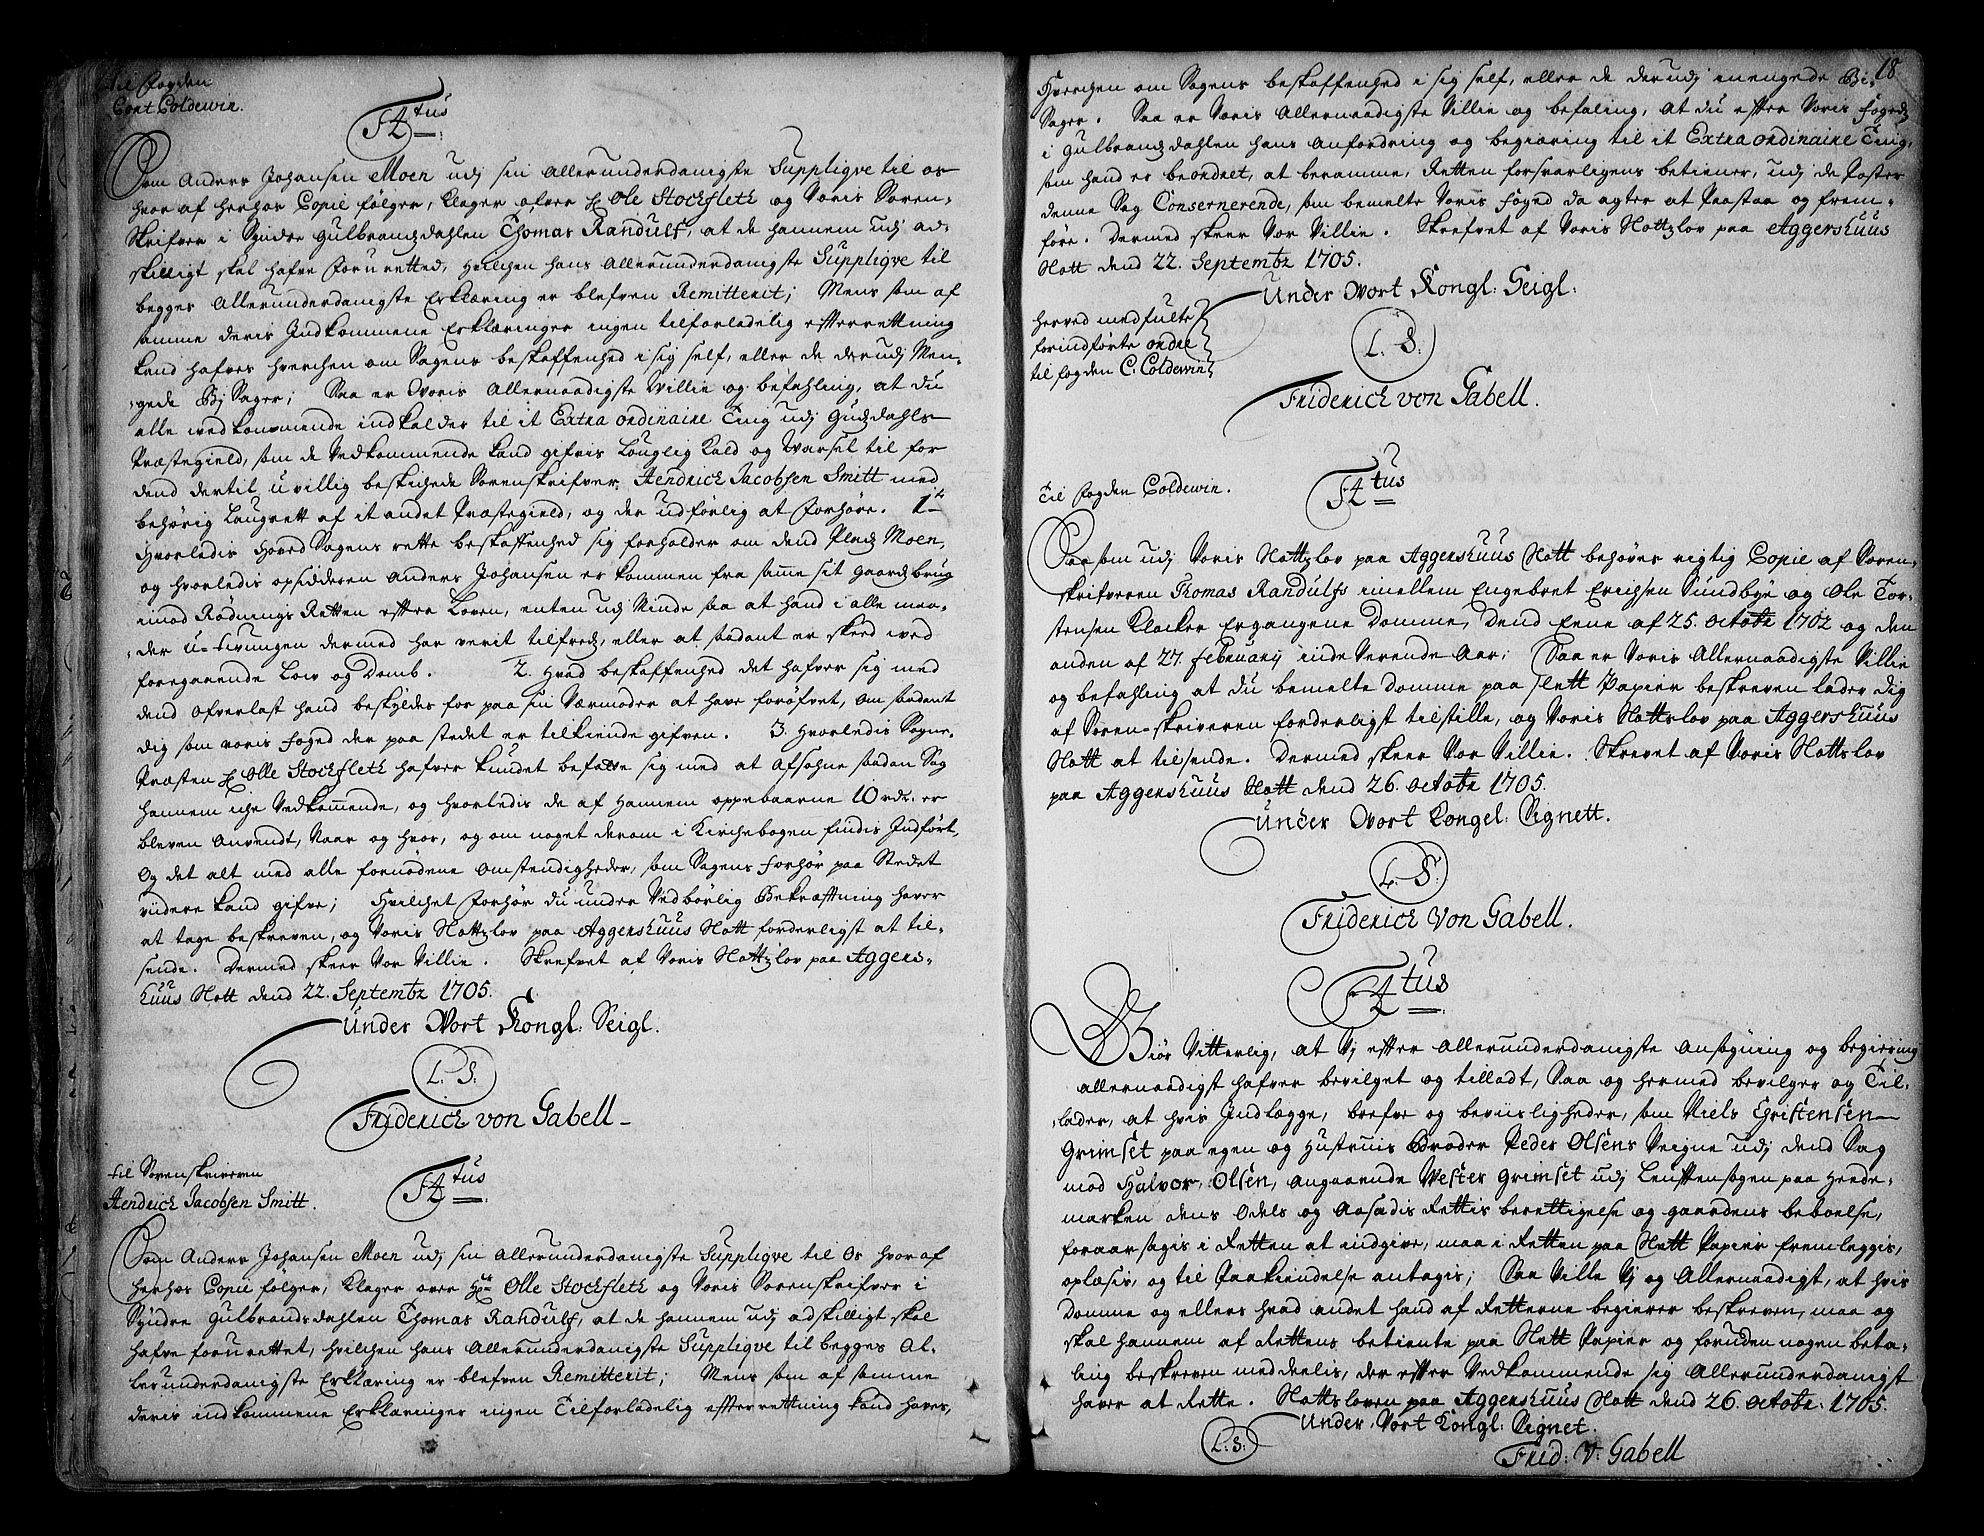 Til Fogden
Cort Coldewin.
F4tus
Som Anders Johansen Moen udj sin allerunderdanigste Suppliqve til os
hvor af herhos Copie følger, klager ofver H. Ole Stockfleth og Voris Soren-
skrifver i Syndre Gulbrandsdahlen Thomas Randulf, at de hannem udj ad-
skilligt skal hafve forurettet, hvilchen hans allerunderdanigste Suppliqve til
begges allerunderdanigste Erklæring er blefven Remitterit; Mens som af
samme deris Indkommene Erklæringer ingen tilforladelig efterretning
kand hafves hverchen om Sagens beskaffenhed i sig self, eller de derudj Men-
gede Bj Sager; Saa er Voris allernaadigste Villie og befahling, at du
alle vedkommende indkalder til it Extra ordinaire Ting udj Gudsdahls
Præstegield, som de Vedkommende kand gifvis Louglig kald og Varsel til for
dend dertil uvillig beskichede Sorenskrifver, Hendrich Jacobsen Smitt med
behørig Laugrett af it andet Præstegield, og der udførlig at forhøre. 1.
Hvorledis Hoved Sagens rette beskaffenhed sig forholder om dend Plads Moen,
og hvorledis opsidderen Anders Johansen er kommen fra samme sit gaardsbrug
imod Rødnings Retten efter Loven, enten udj Minde saa at hand i alle maa-
der u-tvungen dermed har verit tilfreds, eller at sadant er skeed ved
foregaaende Low og Domb. 2. Hvad beskaffenhed det hafver sig med
dend ofverlast hand beskyldes for paa sin Værmoder at have forøfvet, om sadant
dig som voris foged der paa stedet er tilkiende gifven. 3. Hvorledis Sogne-
Præsten H. Olle Stockfleth hafver kundet befatte sig med at afsohne sadan Sag
hannem iche Vedkommende, og hvorledis de af hannem oppebaarne 10 rdr. er
bleven anvendt, Naar og hvor, og om noget derom i Kirchebogen findis Indført,
Og det alt med alle fornødene omstendigheder, som Sagens forhør paa Stedet
viidere kand gifve; Hvilchet forhør du under Vedbørlig Bekræftning haver
at tage beskreven, og Voris Slottzlov paa Aggershuus Slott forderligst at til-
sende. Dermed skeer Vor Villie. Skrefvet af Voris Slottzlov paa Aggers-
huus Slott dend 22. Septembr 1705.
Under Vort Kongl: Seigl.
L. S:
Friderich von Gabell
Til Sorenskriveren
Hendrich Jacobsen Smitt.
F4tus
Som Anders Johansen Moen udj sin allerunderdanigste Suppliqve til Os hvor af
herhos Copie følger, klager over Hr Olle Stockfleth og Voris Sorenskrifver i
Syndre Gulbrandsdahlen Thomas Randulf, at de hannem udj adskilligt skal
hafve forurettet, hvilchen hans allerunderdanigste Suppliqve til begges al-
lerunderdanigste Erklæring er blefven Remitterit; Mens som af samme
deris indkommene Erklæringer ingen Tilforladelig efterretning kand haves,
18
Hverchen om Sagens beskaffenhed i sig self, eller de derudj mengede Bi-
Sager. Saa er Voris Allernaadigste Villie og befaling, at du efter Voris Fogeds
i Gulbrandsdahlen hans anfordring og begiæring til it Extra ordinaire Ting,
som hand er beordret, at beramme, Retten forsvarligens betiener, udj de Poster
denne Sag Consernerende, som bemelte Voris foged da agter at Paastaa og frem-
føre. Dermed skeer Vor Villie. Skrefvet af Voris Slottzlov paa Aggershuus
Slott dend 22. Septembr 1705.
Under Vort Kongl: Seigl:
herved medfulte
forindførte ordre
til fogden C. Coldewin
L. S:
Friderich von Gabell.
Til Fogden Coldewin.
F4tus
Saasom udj Voris Slottzlov paa Aggershuus Slott behøves rigtig Copie af Soren-
skrifveren Thomas Randulfs imellem Engebret Erichsen Sundbye og Ole Tor-
stensen Klocker Ergangene Domme, Dend Eene af 25. octobr 1702 og den
anden af 27. february inde Verende Aar; Saa er Voris Allernaadigste Villie
og befahling at du bemelte Domme paa slett Papier beskreven lader dig
af Soren-skriveren forderligst tilstille, og Voris Slottslov paa Aggershuus
Slott at tilsende. Dermed skeer Vor Villie. Skrevet af Voris Slottslov
paa Aggershuus Slott dend 26. octobr 1705.
Under Vort Kongel: Signett.
L. S:
Friderich Von Gabell.
F4tus
Giør Vitterlig, at Vj efter Allerunderdanigste ansøgning og begiering
allernaadigst hafver bevilget og tilladt, Saa og hermed bevilger og Til-
lader, at hvis Indlægge, brefve og beviisligheder, som Niels Christensen
Grimset paa egen og Hustruis Broder Peder Olsens Veigne udj dend Sag
mod Halvor Olsen, angaaende Vester Grimset udj Leuttensogen paa Hede-
marken dens Odels og Aasædis Rettis berettigelse og gaardens beboelse,
foraarsagis i Retten at indgive, maa i Retten paa Slett Papier fremleggis,
oplæsis, og til Paakiendelse antagis; Saa Ville Vj og Allernaadigst, at hvis
Domme og ellers hvad andet hand af Retterne begierer beskreven, maa og
skal hannem af Rettens betiente paa Slett Papier og foruden nogen beta-
ling beskreven meddeelis, der efter Vedkommende sig Allerunderdanigst
haver at rette. Slottsloven paa Aggershuus Slott dend 26. octobr. 1705.
Under Vort Kongl: Signet.
L. S:
Frid: V: Gabell